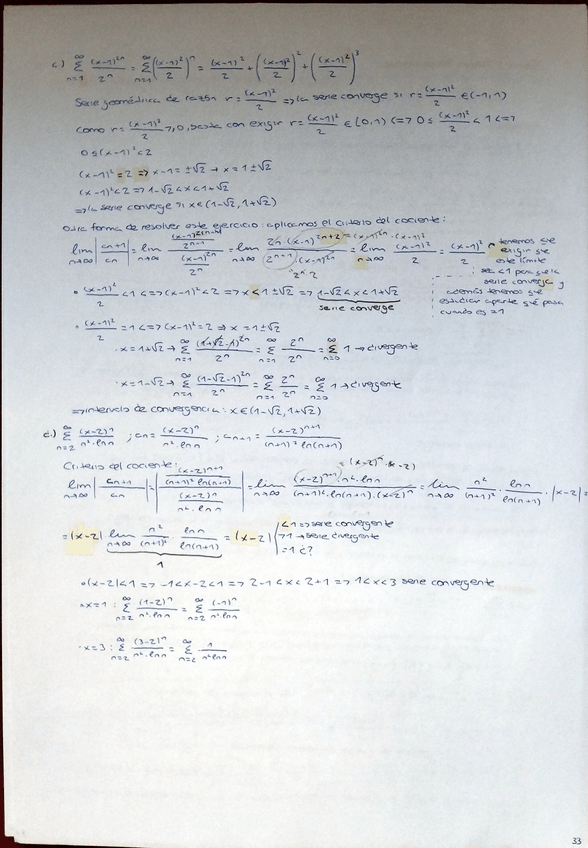 c) ∑_{n=1}^{∞} (x-1)^{2n}/2^n = ∑_{n=1}^{∞} ((x-1)^2/2)^n = (x-1)^2/2 + ((x-1)^2/2)^2 + ((x-1)^2/2)^3
Serie geométrica de razón r = (x-1)^2/2 => la serie converge si r = (x-1)^2/2 ∈ (-1,1)
como r = (x-1)^2/2 ≥ 0, basta con exigir r = (x-1)^2/2 ∈ [0,1) <=> 0 ≤ (x-1)^2/2 < 1 <=>
0 ≤ (x-1)^2 < 2
(x-1)^2 = 2 => x-1 = ±√2 → x = 1±√2
(x-1)^2 < 2 => 1-√2 < x < 1+√2
=> la serie converge si x ∈ (1-√2, 1+√2)
Otra forma de resolver este ejercicio: aplicamos el criterio del cociente:
lim_{n→∞} |a_{n+1}/a_n| = lim_{n→∞} = lim_{n→∞} 2^n·(x-1)^{2n+2}/2^{n+1}·(x-1)^{2n} = lim_{n→∞} (x-1)^2/2 = (x-1)^2/2
= (x-1)^{2n}·(x-1)^2
2^n·2
tenemos que
exigir que
este límite
sea <1 para que la
serie converja y
además tenemos que
estudiar aparte qué pasa
cuando es = 1
• (x-1)^2/2 < 1 <=> (x-1)^2 < 2 => x < 1±√2 => 1-√2 < x < 1+√2
serie converge
• (x-1)^2/2 = 1 <=> (x-1)^2 = 2 => x = 1±√2
· x = 1+√2 → ∑_{n=1}^{∞} (1+√2-1)^{2n}/2^n = ∑_{n=1}^{∞} 2^n/2^n = ∑_{n=0}^{∞} 1 → divergente
· x = 1-√2 → ∑_{n=1}^{∞} (1-√2-1)^{2n}/2^n = ∑_{n=1}^{∞} 2^n/2^n = ∑_{n=0}^{∞} 1 → divergente
=> intervalo de convergencia: x ∈ (1-√2, 1+√2)
d) ∑_{n=2}^{∞} (x-2)^n/n^2·ln n ; a_n = (x-2)^n/n^2·ln n ; a_{n+1} = (x-2)^{n+1}/(n+1)^2 ln(n+1)
Criterio del cociente:
= (x-2)^n·(x-2)
lim_{n→∞} |a_{n+1}/a_n| = |(x-2)^{n+1}/(n+1)^2 ln(n+1) / (x-2)^n/n^2·ln n| = lim_{n→∞} (x-2)^{n+1}·n^2·ln n/(n+1)^2·ln(n+1)·(x-2)^n = lim_{n→∞} n^2/(n+1)^2 · ln n/ln(n+1) · |x-2| =
= |x-2| lim_{n→∞} n^2/(n+1)^2 · ln n/ln(n+1) = |x-2|
1
<1 => serie convergente
>1 → serie divergente
=1 ¿?
• |x-2| < 1 => -1 < x-2 < 1 => 2-1 < x < 2+1 => 1 < x < 3 serie convergente
· x=1 : ∑_{n=2}^{∞} (1-2)^n/n^2·ln n = ∑_{n=2}^{∞} (-1)^n/n^2·ln n
· x=3 : ∑_{n=2}^{∞} (3-2)^n/n^2·ln n = ∑_{n=2}^{∞} 1/n^2 ln n
33